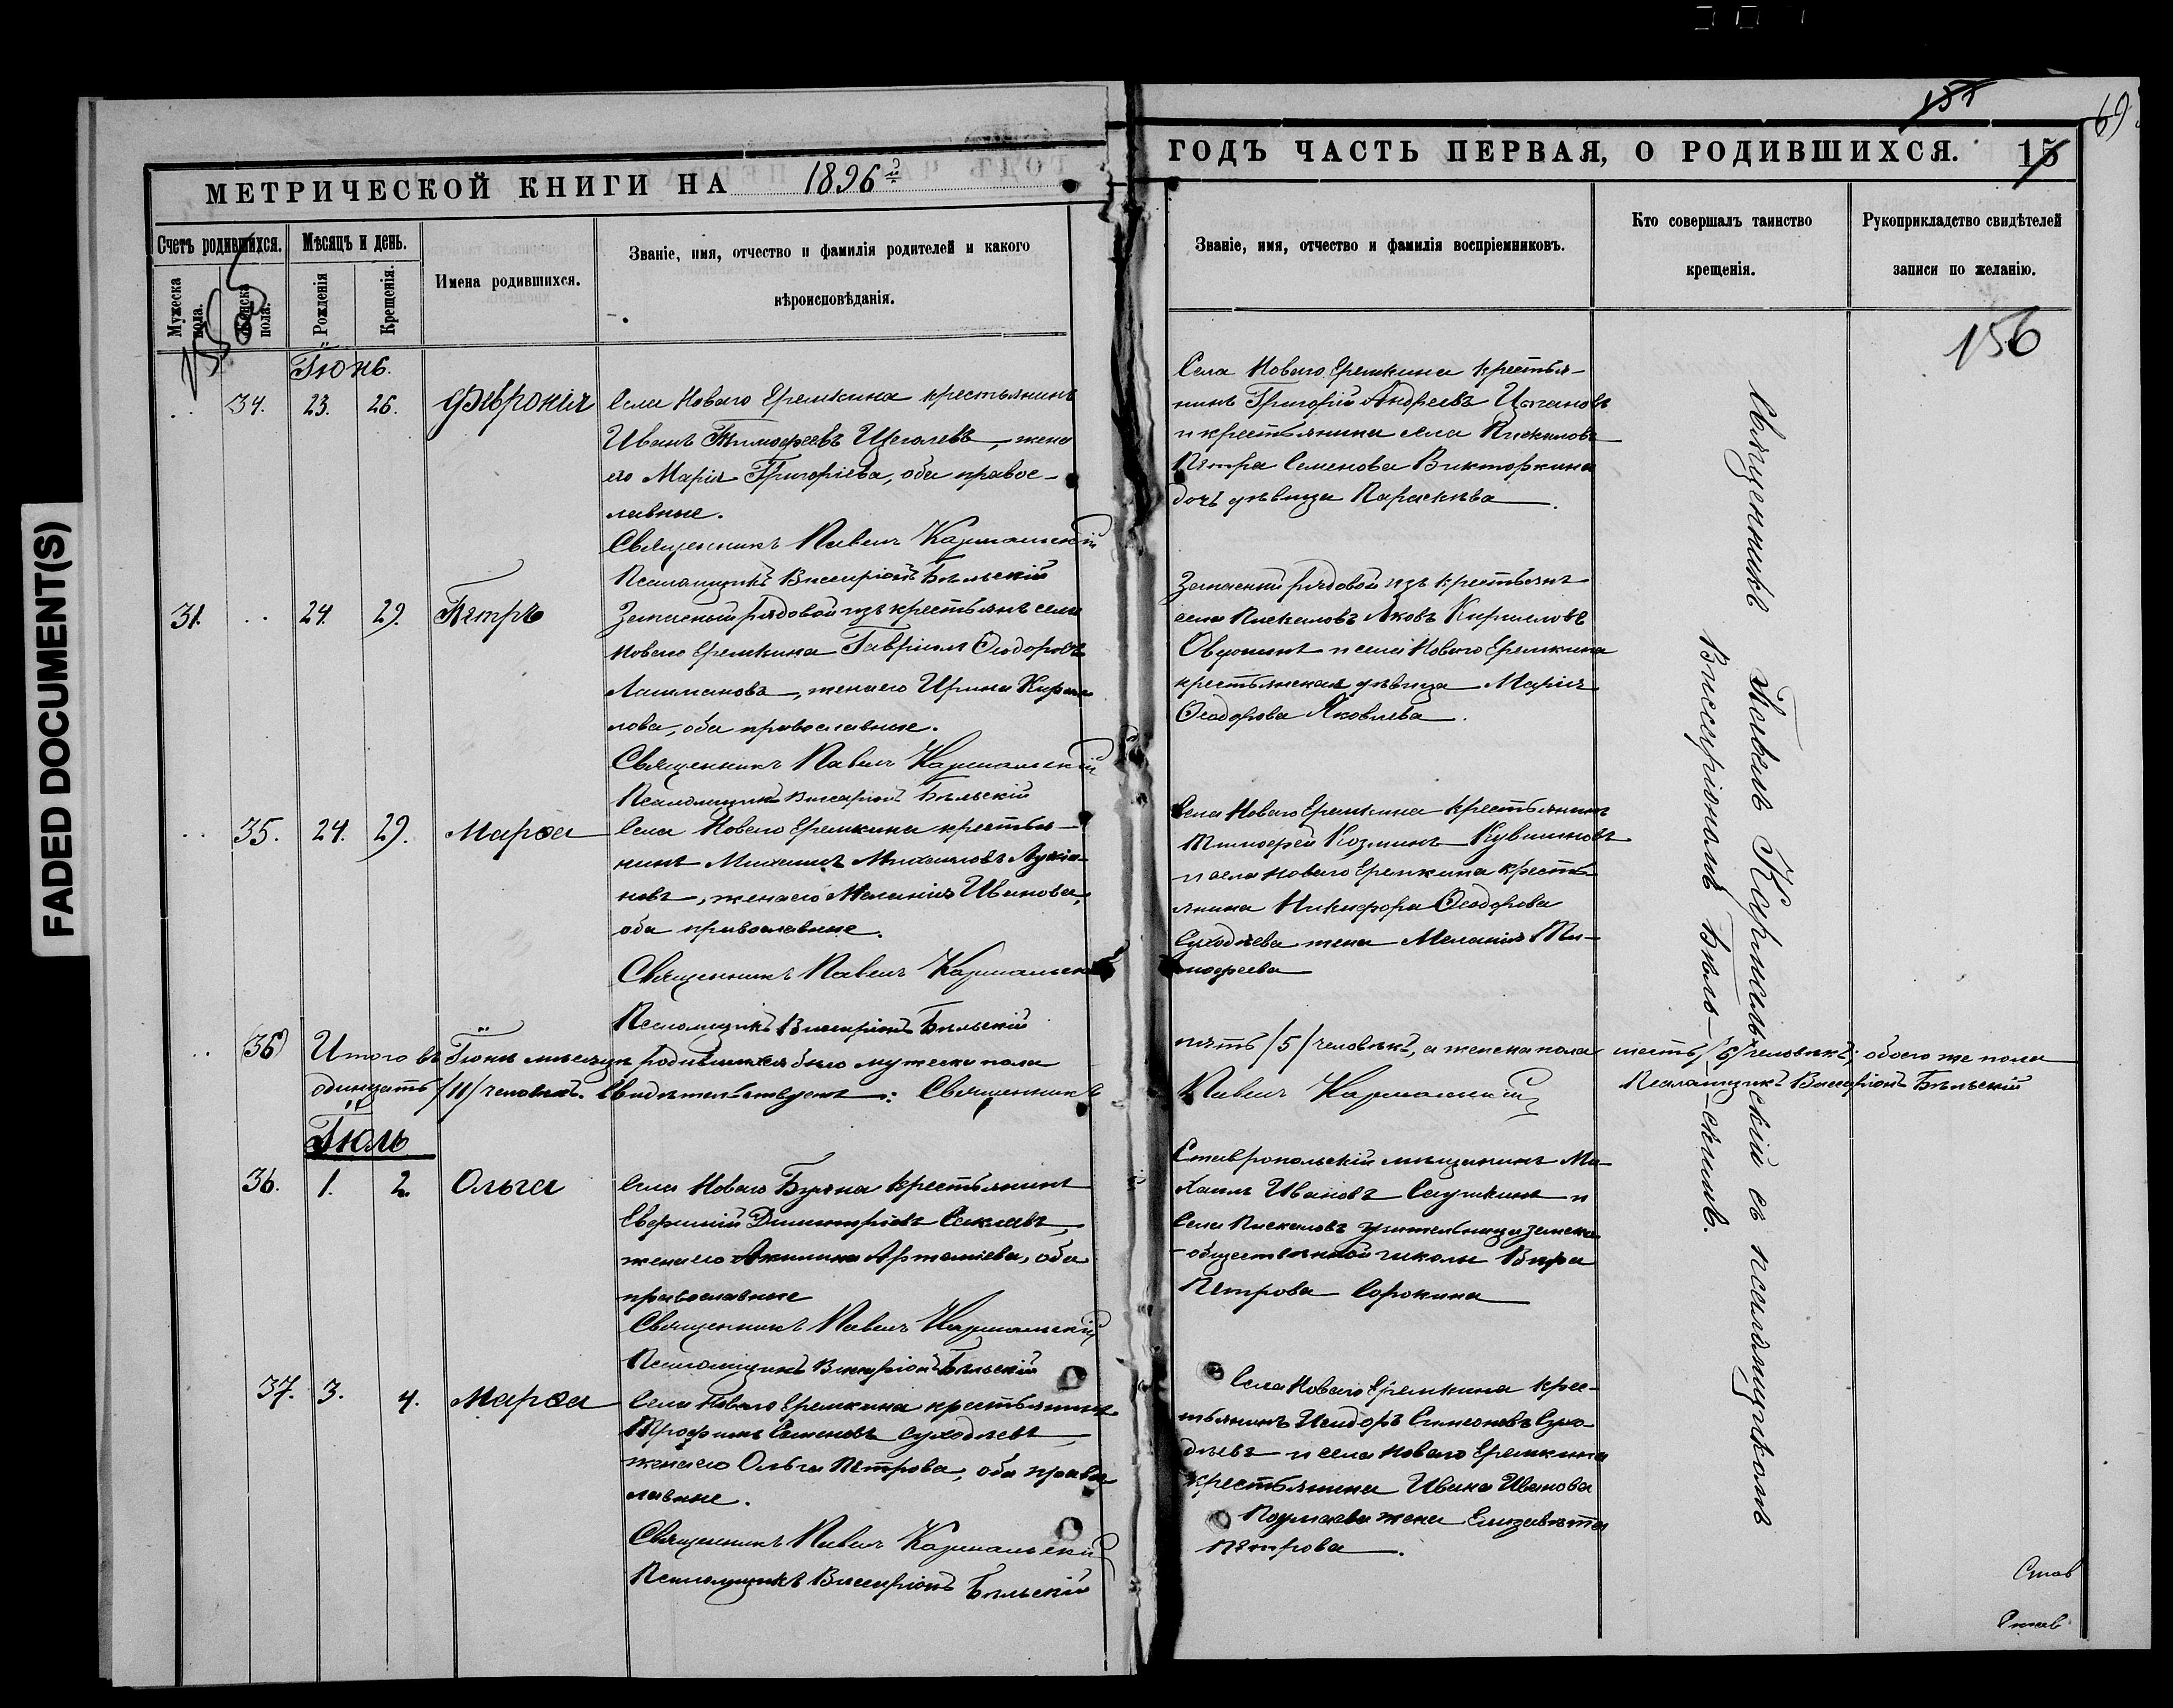 FADED DOCUMENT(S)
155
69
МЕТРИЧЕСКОЙ КНИГИ НА 1896й
ГОДЪ ЧАСТЬ ПЕРВАЯ, О РОДИВШИХСЯ. 15
Счетъ родившихся.
Мужеска пола.
Женска пола.
Мѣсяцъ и день.
Рожденія
Крещенія.
Имена родившихся.
Званіе, имя, отчество и фамилія родителей и какого
вѣроисповѣданія.
Званіе, имя, отчество и фамилія воспріемниковъ.
Кто совершалъ таинство
крещенія.
Рукоприкладство свидѣтелей
записи по желанію.
155
156
Іюнь.
34. 23. 26. Февронія
Села Новаго Еремкина крестьянинъ
Иванъ Тимофеевъ Щеголевъ, жена
его Марія Григоріева, оба правос-
лавные.
Священникъ Павелъ Кармальскій
Псаломщикъ Виссаріонъ Бѣльскій
Села Новаго Еремкина крестья-
нинъ Григорій Андреевъ
и крестьянина села Пискаловъ
Петра Семенова Викторкина
дочь дѣвица Параскева
31. 24. 29. Петръ
Запасный рядовой изъ крестьянъ села
Новаго Еремкина Гавріилъ Ѳеодоровъ
Лашманова, жена его Ирина Кирил-
лова, оба православные.
Священникъ Павелъ Кармальскій
Псаломщикъ Виссаріонъ Бѣльскій
Запасный рядовой изъ крестьянъ
села Пискаловъ Яковъ Кирилловъ
и села Новаго Еремкина
крестьянская дѣвица Марія
Ѳеодорова Яковлева.
35. 24. 29. Марѳа
Села Новаго Еремкина крестья-
нинъ Михаилъ Михаиловъ Лукія-
новъ, жена его Меланія Иванова,
оба православные.
Священникъ Павелъ Кармальскій
Псаломщикъ Виссаріонъ Бѣльскій
Села Новаго Еремкина крестьянинъ
Тимофей Козминъ Кувшиновъ
и села Новаго Еремкина кресть-
янина Никифора Ѳеодорова
Суходѣева жена Меланія Ти-
мофеева
(36) Итого въ Іюнѣ мѣсяцѣ родившихся было мужеска пола пять /5/ человѣкъ, а женска пола шесть /6/ человѣкъ; обоего же пола
одинцать /11/ человѣкъ. Свидѣтельствуютъ: Священникъ Павелъ Кармальскій Псаломщикъ Виссаріонъ Бѣльскій
Іюль
36. 1. 2. Ольга
Села Новаго Буяна крестьянинъ
Евфимій Димитріевъ
жена его Акилина Артеміева, оба
православные
Священникъ Павелъ Кармальскій
Псаломщикъ Виссаріонъ Бѣльскій
Ставропольскій мѣщанинъ Ми-
хаилъ Ивановъ и
Села Пискаловъ учительница земско-
общественной школы Вѣра
Петрова Сорокина
37. 3. 4. Марѳа
Села Новаго Еремкина крестьянинъ
Трофимъ Семеновъ Суходѣевъ,
жена его Ольга Петрова, оба право-
лавные.
Священникъ Павелъ Кармальскій
Псаломщикъ Виссаріонъ Бѣльскій
Села Новаго Еремкина крес-
тьянинъ Исидоръ Симеоновъ Сухо-
дѣевъ и села Новаго Еремкина
крестьянина Ивана Иванова
жена Елизавета
Петрова.
Священникъ Павелъ Кармальскій съ псаломщикомъ
Виссаріономъ Бѣль-скимъ.